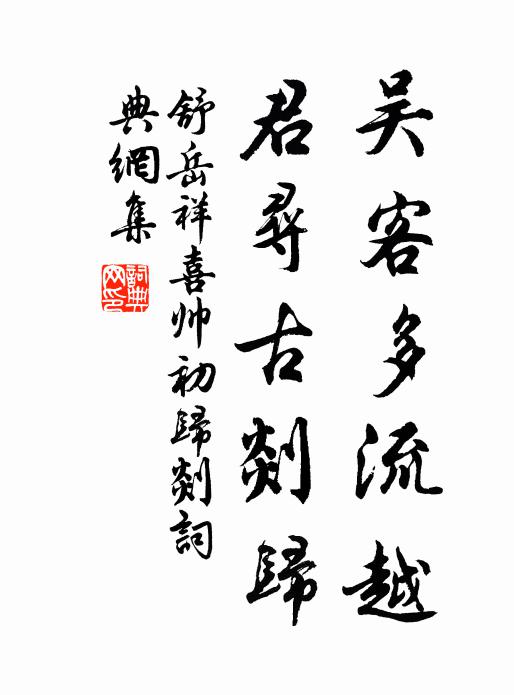 吴客多流越
君尋古剡歸
舒岳祥喜帅初歸剡詞
典網集
詞典網印